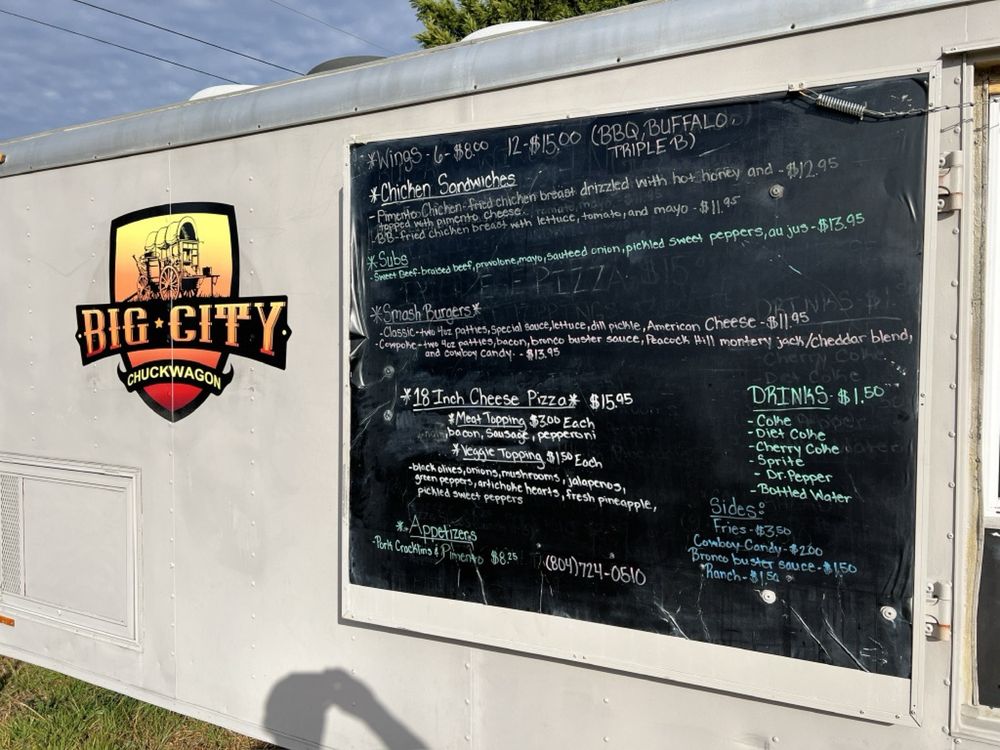 BIG CITY
CHUCKWAGON
*Wings - 6- $8.00 12-$15.00 (BBQ, BUFFALO
TRIPLE B)
*Chicken Sandwiches
- Pimento Chicken- fried chicken breast drizzled with hot honey and - $12.95
topped with pimento cheese
- fried chicken breast with lettuce, tomato, and mayo - $11.95
*Subs
- Sweet Beef- braised beef, provolone, mayo, sauteed onion, pickled sweet peppers, au jus - $13.95
*Smash Burgers*
-Classic - two 4oz patties, special sauce, lettuce, dill pickle, American Cheese - $11.95
-Cowpoke - two 4oz patties, bacon, bronco buster sauce, Peacock Hill montery jack/cheddar blend,
and cowboy candy. - $13.95
*18 Inch Cheese Pizza* $15.95
*Meat Topping $3.00 Each
bacon, Sausage, pepperoni
*Veggie Topping $1.50 Each
-black olives, onions, mushrooms, jalapenos,
green peppers, artichoke hearts, fresh pineapple,
pickled sweet peppers
*-Appetizers
-Pork Cracklins & Pimento $8.25
(804)724-0510
DRINKS - $1.50
- Coke
- Diet Coke
- Cherry Coke
- Sprite
- Dr. Pepper
- Bottled Water
Sides:
Fries - $3.50
Cowboy Candy - $2.00
Bronco buster sauce - $1.50
Ranch - $1.50